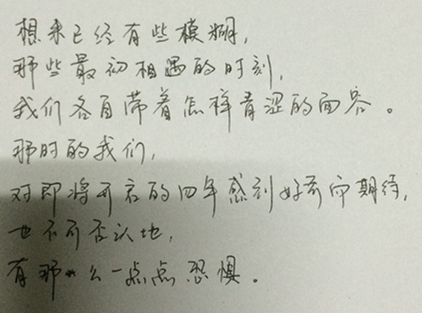 想来已经有些模糊，
那些最初相遇的时刻，
我们各自带着怎样青涩的面容。
那时的我们，
对即将开启的四年感到好奇而期待，
也不可否认地，
有那么一点点恐惧。